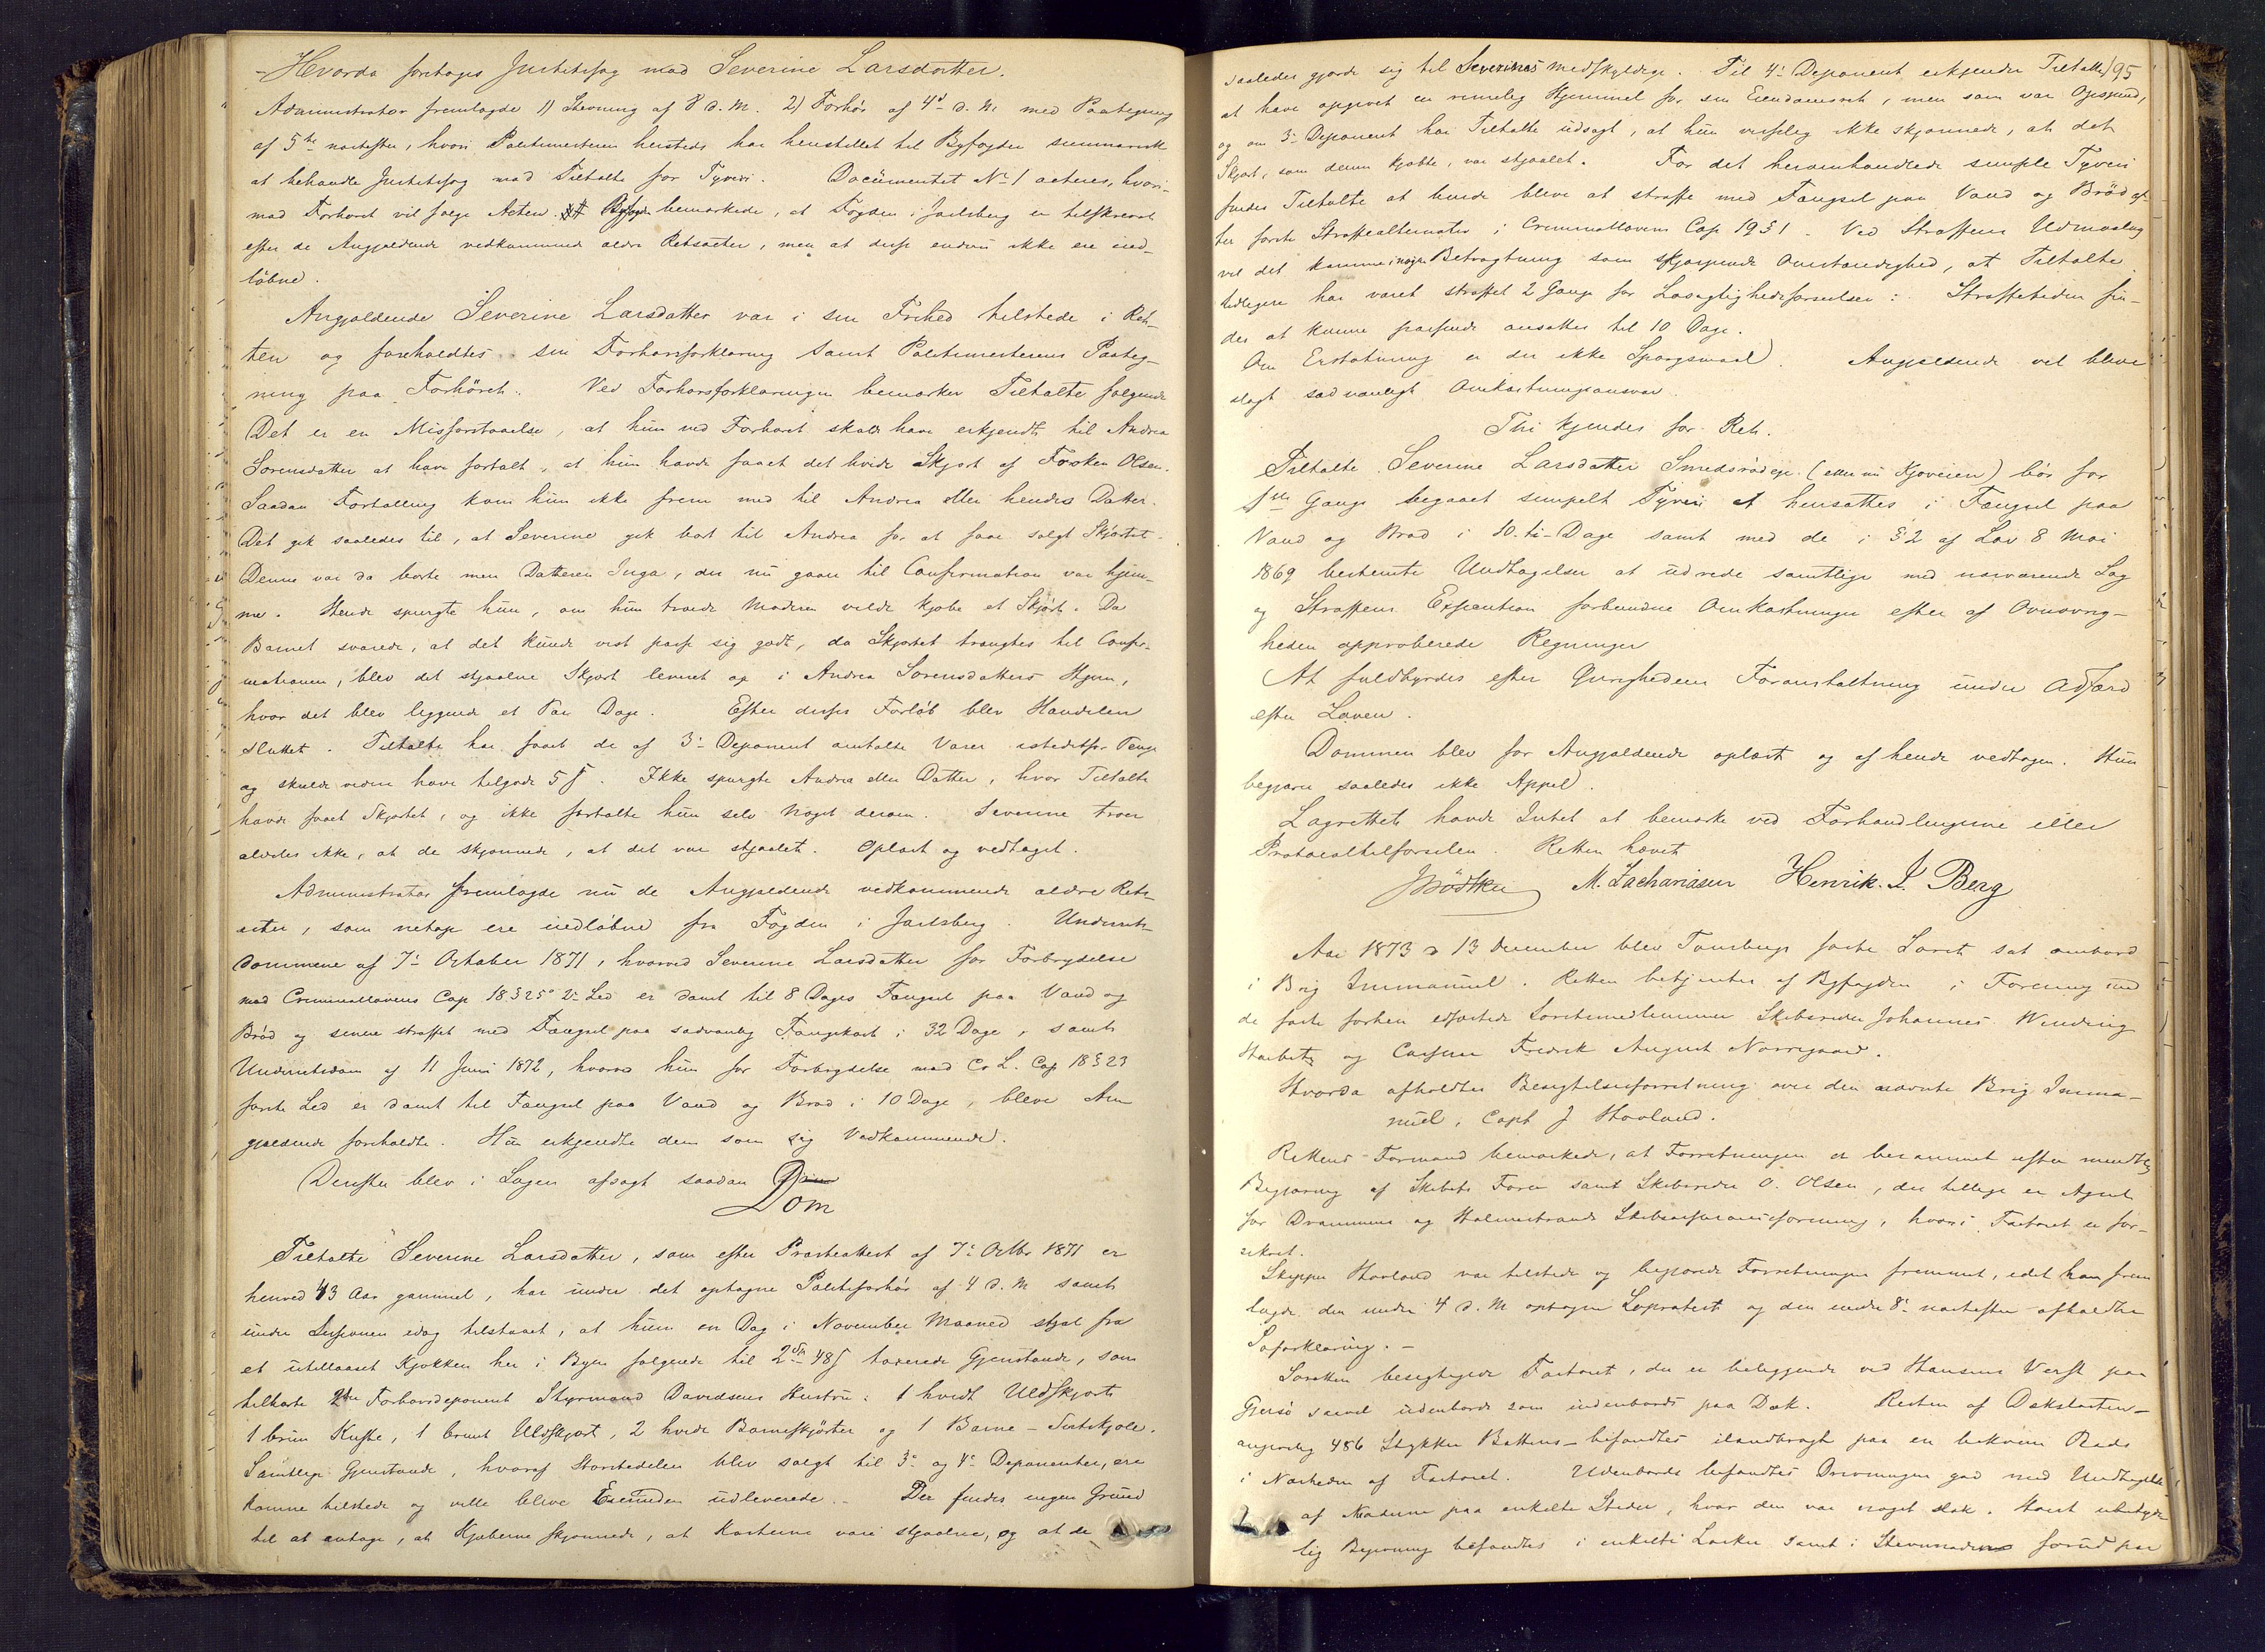 Hvorda foretoges Justitssag mod Severine Larsdatter.
Administrator fremlagde 1) Stevning af 8 d. M. 2) Forhör af 4de d. M. med Paategning
af 5te næstefter, hvori Politimesteren hersteds har henstillet til Byfogden summarisk
at behandle Justitssag mod Tiltalte for Tyveri. Documentet No 1 acteres, hvori-
mod Forhöret vil fölge Acten. Byfogden bemærkede, at Fogden i Jarlsberg er tilskrevet
efter de Angjældende vedkommende ældre Retsacter, men at disse endnu ikke ere ind-
löbne.
Angjældende Severine Larsdatter var i sin Frihed tilstede i Ret-
ten og foreholdtes sin Forhörsforklaring samt Politimesterens Paateg-
ning paa Forhöret. Ved Forhörsforklaringen bemærker Tiltalte fölgende
Det er en Misforstaaelse, at hun ved Forhöret skulde have erkjendt til Andrea
Sörensdatter at have fortalt, at hun havde faaet det hvide Skjört af Fröken Olsen.
Saadan Fortælling kom hun ikke frem med til Andrea eller hendes Datter.
Det gik saaledes til, at Severine gik bort til Andrea for at faae solgt Skjörtet.
Denne var da borte men Datteren Inga, der nu gaaer til Confirmation var hjem-
me. Hende spurgte hun, om hun troede Moderen vilde kjöbe et Skjört. Da
Barnet svarede, at det kunde vist passe sig godt, da Skjörtet trængtes til Confir-
mationen, blev det stjaalne Skjört leveret op i Andrea Sörensdatters Hjem,
hvor det blev liggende et Par Dage. Efter disses Forlöb blev Handelen
sluttet. Tiltalte har faaet de af 3die Deponent omtalte Varer istedetfor Penge
og skulde videre have tilgode 5 ß. Ikke spurgte Andrea eller Datter, hvor Tiltalte
havde faaet Skjörtet, og ikke fortalte hun selv Noget derom. Severine troer
aldeles ikke, at de skjönnede, at det var stjaalet. Oplæst og vedtaget.
Administrator fremlagde nu de Angjældende vedkommende ældre Rets-
acter, som netop ere indlöbne fra Fogden i Jarlsberg. Underrets-
dommene af 7de October 1871, hvorved Severine Larsdatter for Forbrydelse
mod Criminallovens Cap 18 § 25 2det Led er dömt til 8 Dages Fængsel paa Vand og
Bröd og senere straffet med Fængsel paa sædvanlig Fangekost i 32 Dage, samt
Underretsdom af 11 Juni 1872, hvorved hun for Forbrydelse mod Cr L. Cap 18 § 23
förste Led er dömt til Fængsel paa Vand og Bröd i 10 Dage, bleve An-
gjældende foreholdte. Hun erkjendte dem som sig Vedkommende.
Derefter blev i Sagen afsagt saadan
Dom
Tiltalte Severine Larsdatter, som efter Præsteattest af 7de Octbr 1871 er
henved 43 Aar gammel, har under det optagne Politiforhör af 4 d. M samt
under Sessionen idag tilstaaet, at hun en Dag i November Maaned stjal fra
et utillaaset Kjökken her i Byen fölgende til 2 Spd 48 ß taxerede Gjenstande, som
tilhörte 2den Forhörsdeponent Styrmand Davidsens Hustru: 1 hvidt Uldskjört
1 brun Kufte, 1 brunt Uldskjört, 2 hvide Barneskjörter og 1 Barne-Sirtskjole.
Samtlige Gjenstande, hvoraf Störstedelen blev solgt til 3de og 4de Deponenter, ere
komne tilstede og ville blive Eierinden udleverede. Der findes ingen Grund
til at antage, at Kjöberne skjönnede, at Kosterne vare stjaalne, og at de
195
saaledes gjorde sig til Severines Medskyldige. Til 4de Deponent erkjender Tiltalte
at have opgivet en rimelig Hjemmel for sin Eiendomsret, men som var Opspind,
og om 3die Deponent har Tiltalte udsagt, at hun visselig ikke skjönnede, at det
Skjört, som denne kjöbte, var stjaalet. For det heromhandlede simple Tyveri
findes Tiltalte at burde blive at straffe med Fængsel paa Vand og Bröd ef-
ter förste Straffealternativ i Criminallovens Cap 19 § 1. Ved Straffens Udmaaling
vil det komme i nogen Betragtning som skjærpende Omstændighed, at Tiltalte
tidligere har været straffet 2 Gange for Løsagtighedsforseelser: Straffetiden fin-
des at kunne passende ansættes til 10 Dage.
Om Erstatning er der ikke Spørgsmaal. Angjældende vil blive
ilagt sædvanligt Omkostningsansvar.
Thi kjendes for Ret.
Tiltalte Severine Larsdatter Smedsrödeje (eller nu Kjöveien) bör for
1ste Gang begaaet simpelt Tyveri at hensættes i Fængsel paa
Vand og Bröd i 10 ti Dage samt med de i § 2 af Lov 8 Mai
1869 bestemte Undtagelser at udrede samtlige med nærværende Sag
og Straffens Execution forbundne Omkostninger efter af Overövrig-
heden approberede Regninger
At fuldbyrdes efter Övrighedens Foranstaltning under Adfærd
efter Loven.
Dommen blev for Angjældende oplæst og af hende vedtagen. Hun
begjærer saaledes ikke Appel.
Lagrettet havde Intet at bemærke ved Forhandlingerne eller
Protocoltilförselen. Retten hævet
M. Zachariasen Henrik. J. Berg
Aar 1873 d 13 December blev Tønsbergs förste Söret sat ombord
i Brig Immanuel. Retten betjentes af Byfogden i Forening med
de faste forhen edfæstede Söretsmedlemmer Skibsreder Johannes
og Capt Fredrik August Norregaard.
Hvorda afholdtes Besigtelsesforretning over den nævnte Brig Imma-
nuel, Capt J Hovland.
Rettens Formand bemærkede, at Forretningen er berammet efter mundtlig
Begjæring af Skibets Förer samt Skibsreder O. Olsen, der tillige er Agent
for Drammens og Holmestrands Skibsassuranceforening, hvori Fartöiet er for-
sikret.
Skipper Hovland var tilstede og begjærede Forretningen fremmet, idet han frem
lagde den under 4 d. M optagne Søprotest og den under 8de næstefter afholdte
Söforklaring. –
Søretten besigtigede Fartöiet, der er beliggende ved Hansens Verft paa
saavel udenbords som indenbords paa Dæk. Resten af Dækslasten –
angivelig 486 Stykker Battens – befandtes ilandbragt paa en bekvem Plads
i Nærheden af Fartöiet. Udenbords befandtes Drivningen god med Undtagelse
af Naaderne paa enkelte Steder, hvor den var noget slak. Høist ubetyde
lig Bøining befandtes i enkelte samt i forud paa